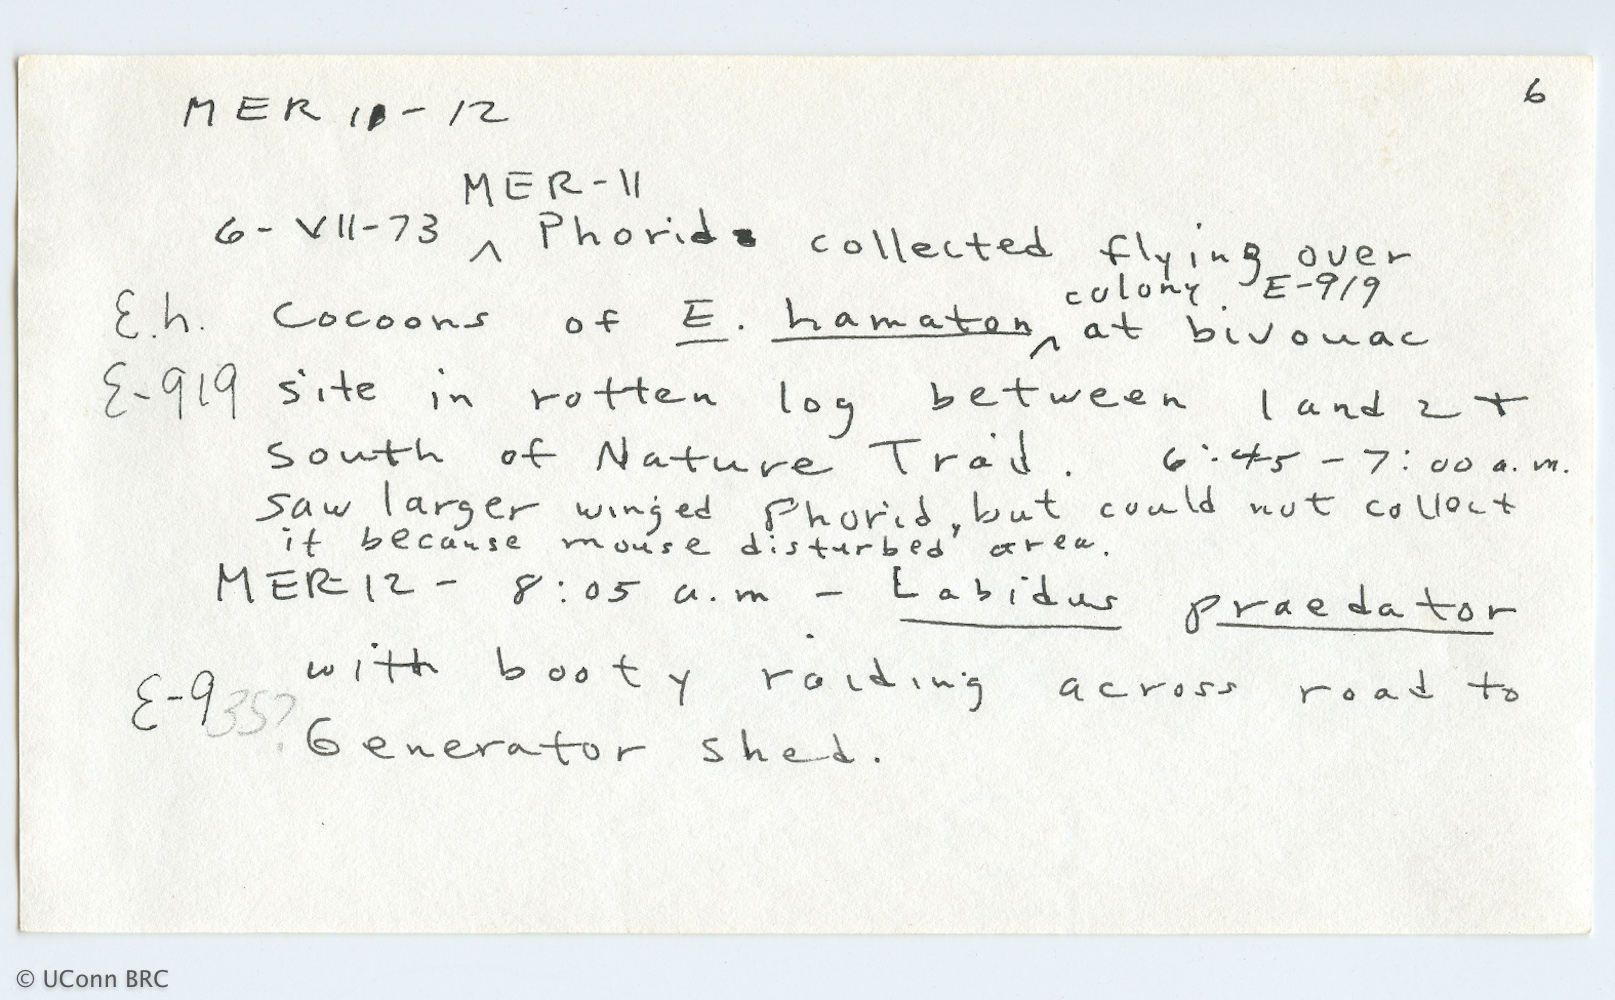 6
MER 11-12
MER-11
6-VII-73 ^ Phorid collected flying over
colony E-919
E.h. Cocoons of E. hamaton ^ at bivouac
E-919 site in rotten log between 1 and 2 +
south of Nature Trail. 6:45-7:00 a.m.
saw larger winged Phorid, but could not collect
it because mouse disturbed area.
MER-12 - 8:05 a.m - Labidus praedator
with booty raiding across road to
E-935?
Generator shed.
© UConn BRC